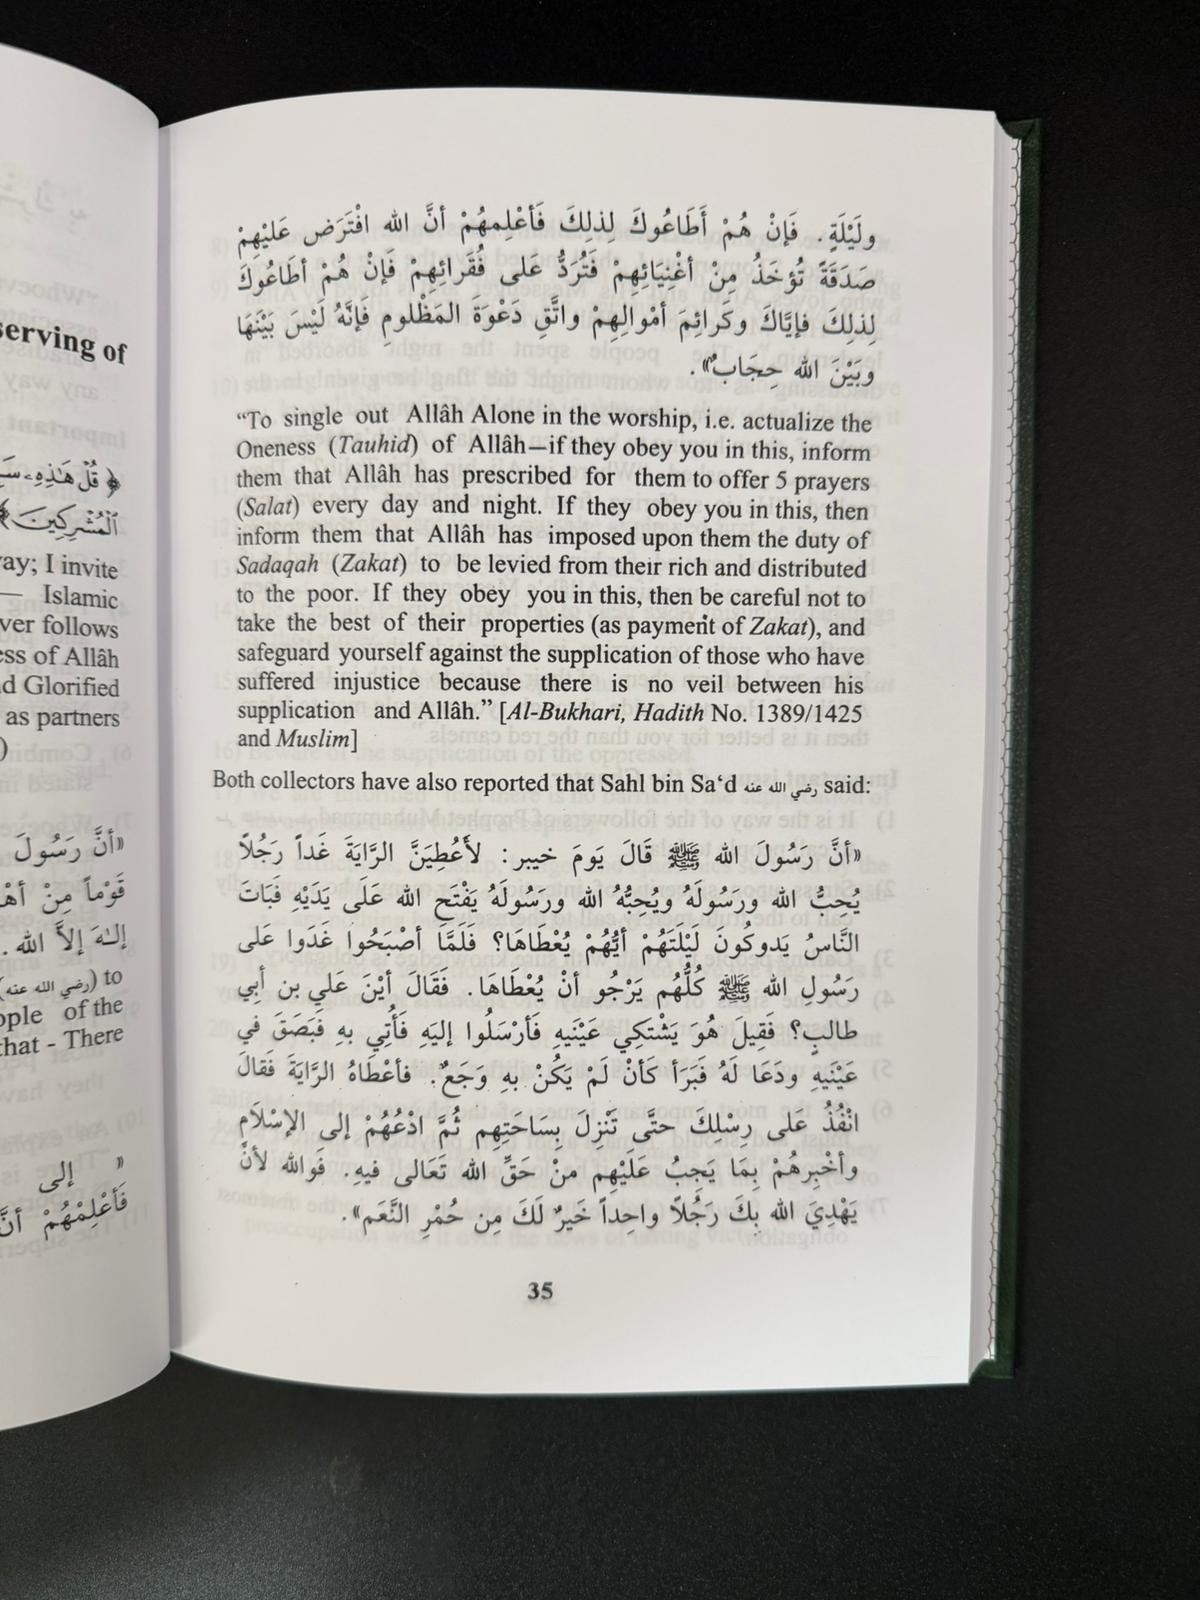 serving of
﴿ قُلْ هَٰذِهِۦ
ٱلْمُشْرِكِينَ﴾
way; I invite
— Islamic
ver follows
ess of Allâh
d Glorified
as partners
)
«أنَّ رَسُولَ
قَوْماً مِنْ
إلـٰهَ إلاَّ الله .
(رضي الله عنه) to
ople of the
that - There
» إلى
فَأعْلِمْهُمْ أنَّ
ولَيْلَةٍ. فَإنْ هُمْ أَطَاعُوكَ لِذلِكَ فَأعْلِمهُمْ أنَّ الله افْتَرَض عَليْهِمْ
صَدَقَةً تُؤخَذُ مِنْ أغْنِيَائِهِمْ فَتُرَدُّ عَلى فُقَرائِهِمْ فَإنْ هُمْ أطَاعُوكَ
لِذلِكَ فإيَّاكَ وكَرائِمَ أمْوالِهِمْ واتَّقِ دَعْوَةَ المَظْلومِ فَإنَّهُ لَيْسَ بَيْنَهَا
وبَيْنَ الله حِجَابٌ».
“To single out Allâh Alone in the worship, i.e. actualize the
Oneness (Tauhid) of Allâh—if they obey you in this, inform
them that Allâh has prescribed for them to offer 5 prayers
(Salat) every day and night. If they obey you in this, then
inform them that Allâh has imposed upon them the duty of
Sadaqah (Zakat) to be levied from their rich and distributed
to the poor. If they obey you in this, then be careful not to
take the best of their properties (as payment of Zakat), and
safeguard yourself against the supplication of those who have
suffered injustice because there is no veil between his
supplication and Allâh.” [Al-Bukhari, Hadith No. 1389/1425
and Muslim]
Both collectors have also reported that Sahl bin Sa‘d رضي الله عنه said:
«أنَّ رَسُولَ الله ﷺ قَالَ يَومَ خيبر: لأَعُطِيَنَّ الرَّايَةَ غَداً رَجُلًا
يُحِبُّ الله ورَسُولَهُ ويُحِبُّهُ الله ورَسُولَهُ يَفْتَح الله عَلَى يَدَيْهِ فَبَاتَ
النَّاسُ يَدوكُونَ لَيْلَتَهُمْ أيُّهُمْ يُعْطَاهَا؟ فَلَمَّا أصْبَحُوا غَدَوا عَلى
رَسُولِ الله ﷺ كُلُّهُم يَرْجُو أنْ يُعْطَاهَا. فَقَالَ أيْنَ عَلي بن أبي
طالبٍ؟ فَقِيلَ هُوَ يَشْتَكِي عَيْنَيهِ فَأرْسَلُوا إليَهِ فَأُتِي بهِ فَبَصَقَ في
عَيْنَيهِ ودَعَا لَهُ فَبَرَأ كَأنْ لَمْ يَكُنْ بهِ وَجَعٌ. فأعْطَاهُ الرَّايَةَ فَقالَ
انْفُذُ عَلى رِسْلِكَ حتَّى تَنْزِلَ بِسَاحَتِهِم ثُمَّ ادْعُهُمْ إلى الإسْلَامِ
وأخْبِرهُمْ بِمَا يَجِبُ عَلَيْهِم منْ حَقِّ الله تَعَالى فيهِ. فَوالله لأنْ
يَهْدِيَ الله بِكَ رَجُلًا واحِداً خَيرٌ لَكَ مِن حُمْرِ النَّعَم».
35